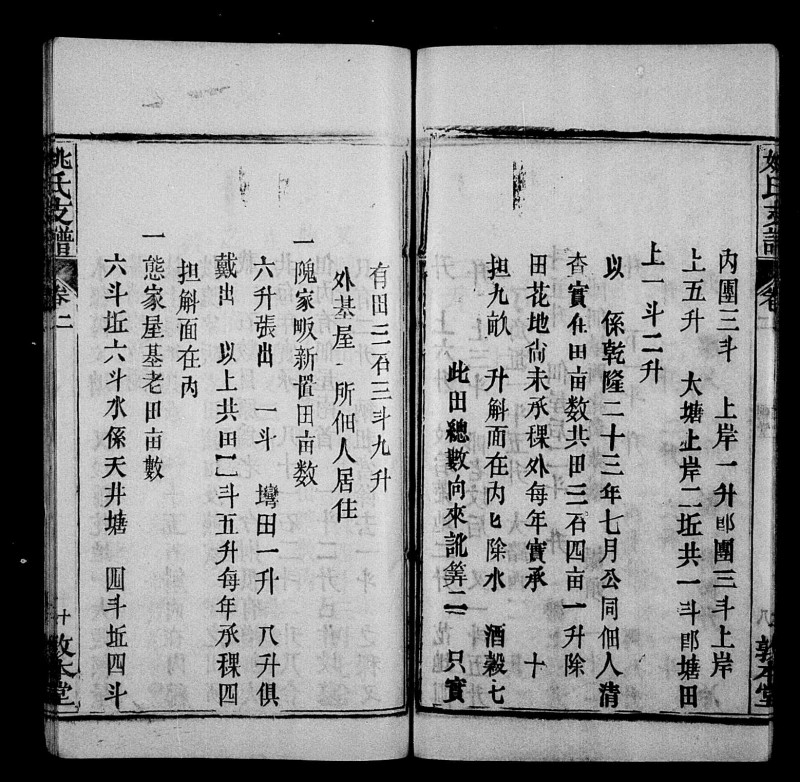 姚氏支譜
卷二
八
敦本堂
內團三斗 上岸一升郎團三斗上岸
上五升 大塘上岸二坵共一斗郎塘田
上一斗二升
以 係乾隆二十三年七月公同佃人清
查實在田亩数共田三石四亩一升除
田花地尙未承稞外每年實承 十
担九畝 升斛面在內匕除水 酒穀七
此田總數向來訛筭二 只實
有田三石三斗九升
外基屋一所佃人居住
一隗家畈新置田亩数
六升張出 一斗 塆田一升 八升俱
戴出 以上共田 斗五升每年承稞四
担斛面在內
一態家屋基老田亩數
六斗坵六斗水係天井塘 四斗坵四斗
姚氏支譜
卷二
十
敦本堂